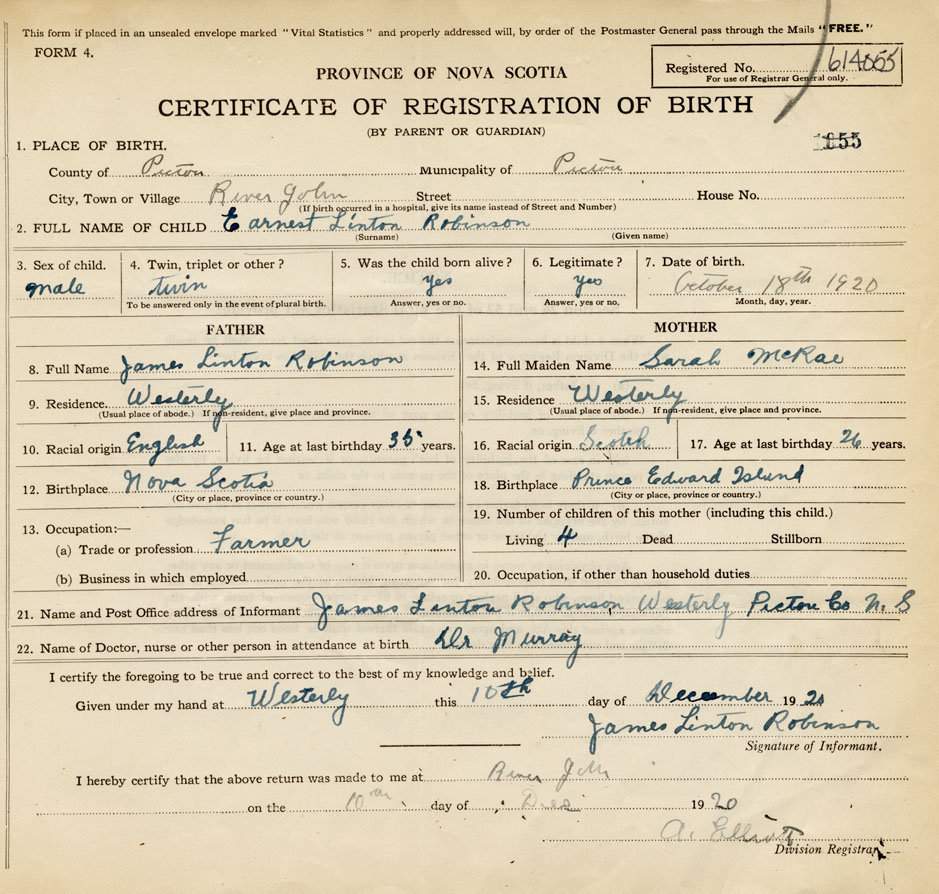 This form if placed in an unsealed envelope marked "Vital Statistics" and properly addressed will, by order of the Postmaster General pass through the Mails "FREE."
FORM 4.
Registered No. 614055
For use of Registrar General only.
PROVINCE OF NOVA SCOTIA
CERTIFICATE OF REGISTRATION OF BIRTH
(BY PARENT OR GUARDIAN)
1. PLACE OF BIRTH.
County of Pictou Municipality of Pictou
City, Town or Village River John Street House No.
(If birth occurred in a hospital, give its name instead of Street and Number)
2. FULL NAME OF CHILD Earnest Linton Robinson
(Surname) (Given name)
3. Sex of child. 4. Twin, triplet or other? 5. Was the child born alive? 6. Legitimate? 7. Date of birth.
male twin yes yes October 18th 1920
To be answered only in the event of plural birth. Answer, yes or no. Answer, yes or no. Month, day, year.
FATHER
8. Full Name James Linton Robinson
9. Residence. Westerly
(Usual place of abode.) If non-resident, give place and province.
10. Racial origin English 11. Age at last birthday 35 years.
12. Birthplace Nova Scotia
(City or place, province or country.)
13. Occupation:—
(a) Trade or profession Farmer
(b) Business in which employed
MOTHER
14. Full Maiden Name Sarah McRae
15. Residence Westerly
(Usual place of abode.) If non-resident, give place and province.
16. Racial origin Scotch 17. Age at last birthday 26 years.
18. Birthplace Prince Edward Island
(City or place, province or country.)
19. Number of children of this mother (including this child.)
Living 4 Dead Stillborn
20. Occupation, if other than household duties
21. Name and Post Office address of Informant James Linton Robinson Westerly Pictou Co N. S
22. Name of Doctor, nurse or other person in attendance at birth Dr Murray
I certify the foregoing to be true and correct to the best of my knowledge and belief.
Given under my hand at Westerly this 10th day of December 1920
James Linton Robinson
Signature of Informant.
I hereby certify that the above return was made to me at River John
on the 10th day of Dec 1920
A. Elliott
Division Registrar